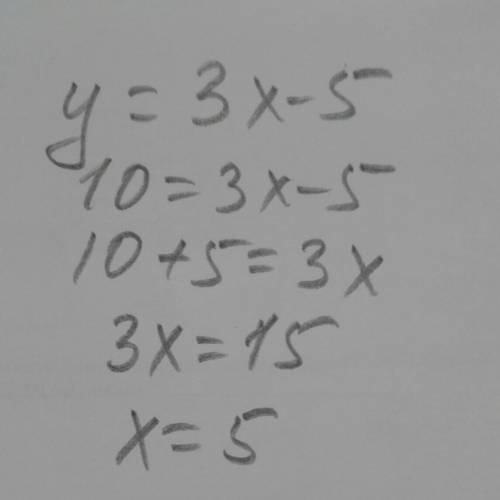 y = 3x - 5
10 = 3x - 5
10 + 5 = 3x
3x = 15
x = 5